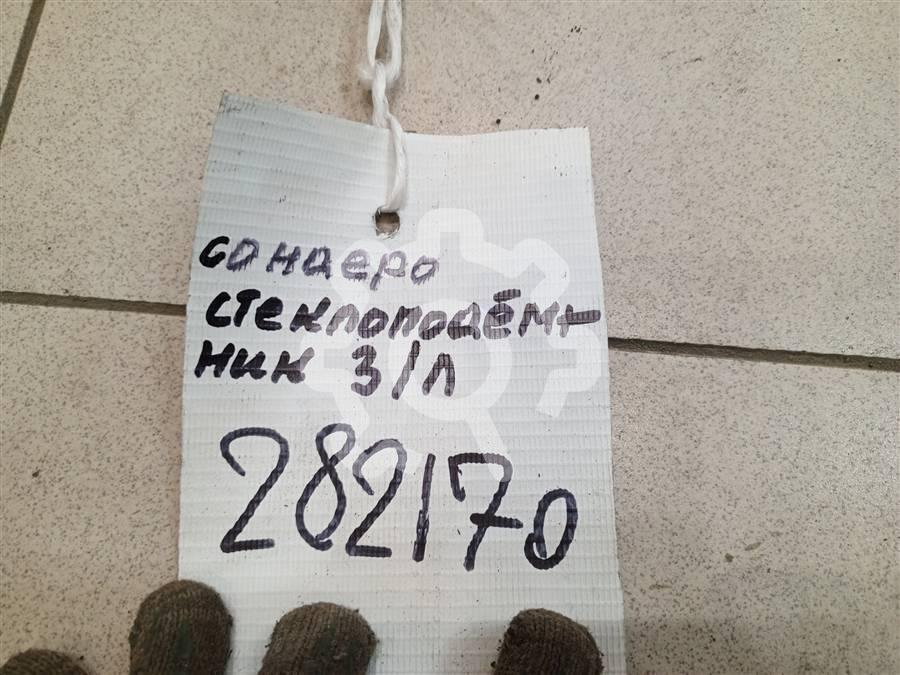 сандеро
стеклоподъём-
ник З/Л
282170